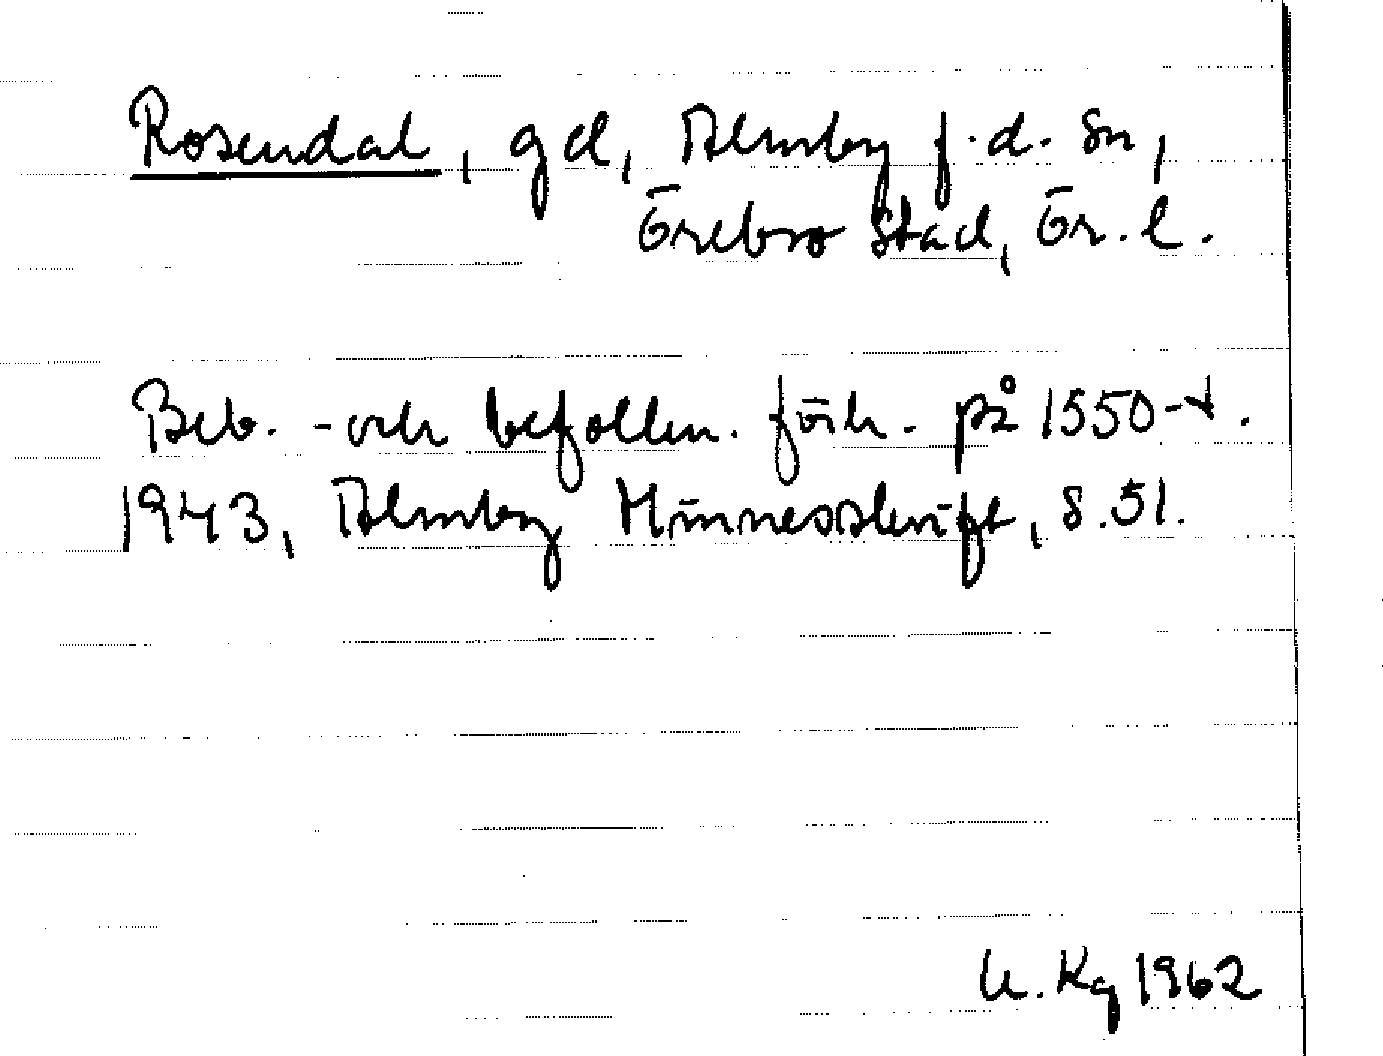 Rosendal, gd, Almby f.d. sn,
Örebro stad, Ör. l.
Beb. - och befolkn. förh. på 1550-t.
1943, Almby Minnesskrift, s. 51.
U. Kg 1962